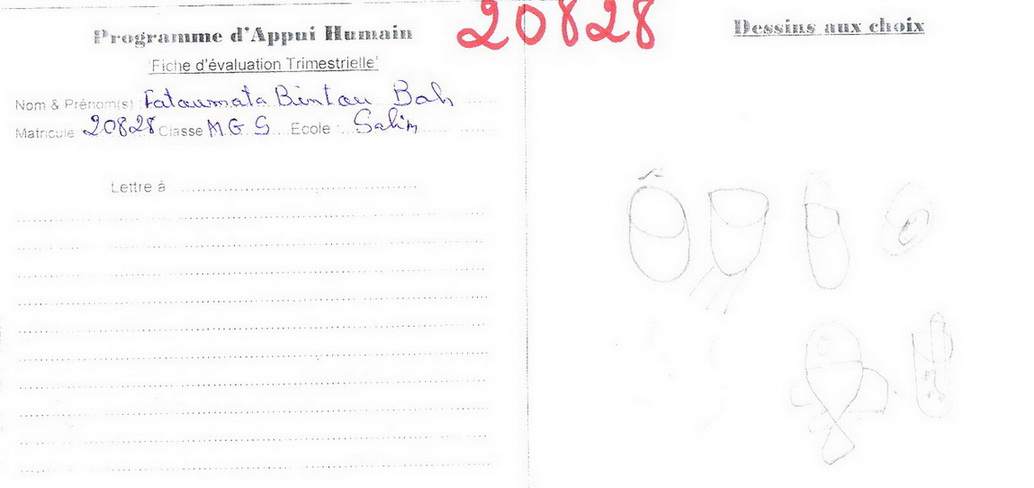 Programme d'Appui Humain
20828
Fiche d'évaluation Trimestrielle
Nom & Prénom(s) : Fatoumata Bintou Bah
Matricule 20828 Classe M G S Ecole : Salim
Lettre à
Dessins aux choix